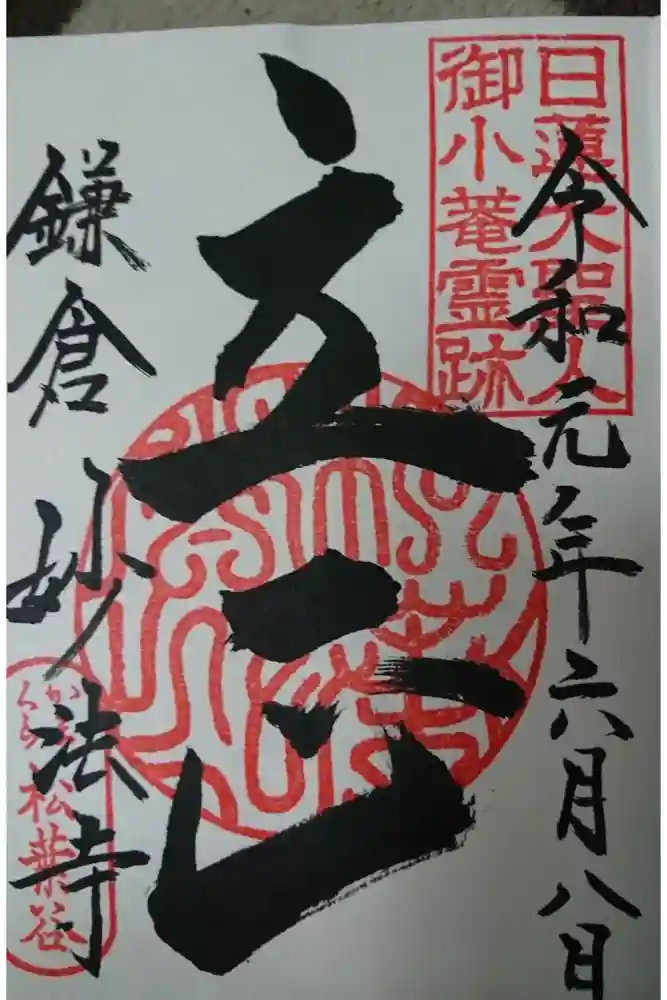 令和元年六月八日
日蓮大聖人
御小菴霊跡
立正
鎌倉 妙法寺
かま
くら
松葉谷